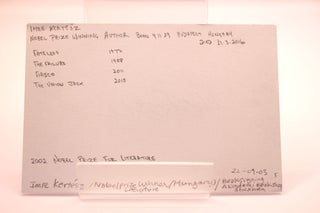 IMRE KERTÉSZ
NOBEL PRIZE WINNING AUTHOR BORN 9.11.29 BUDAPEST HUNGARY
DIED 31.3.2016
FATELESS 1975
THE FAILURE 1988
FIASCO 2011
THE UNION JACK 2010
2002 NOBEL PRIZE FOR LITERATURE
22-09-03
Imre Kertész/Nobel Prize Winner/Hungary/
Literature